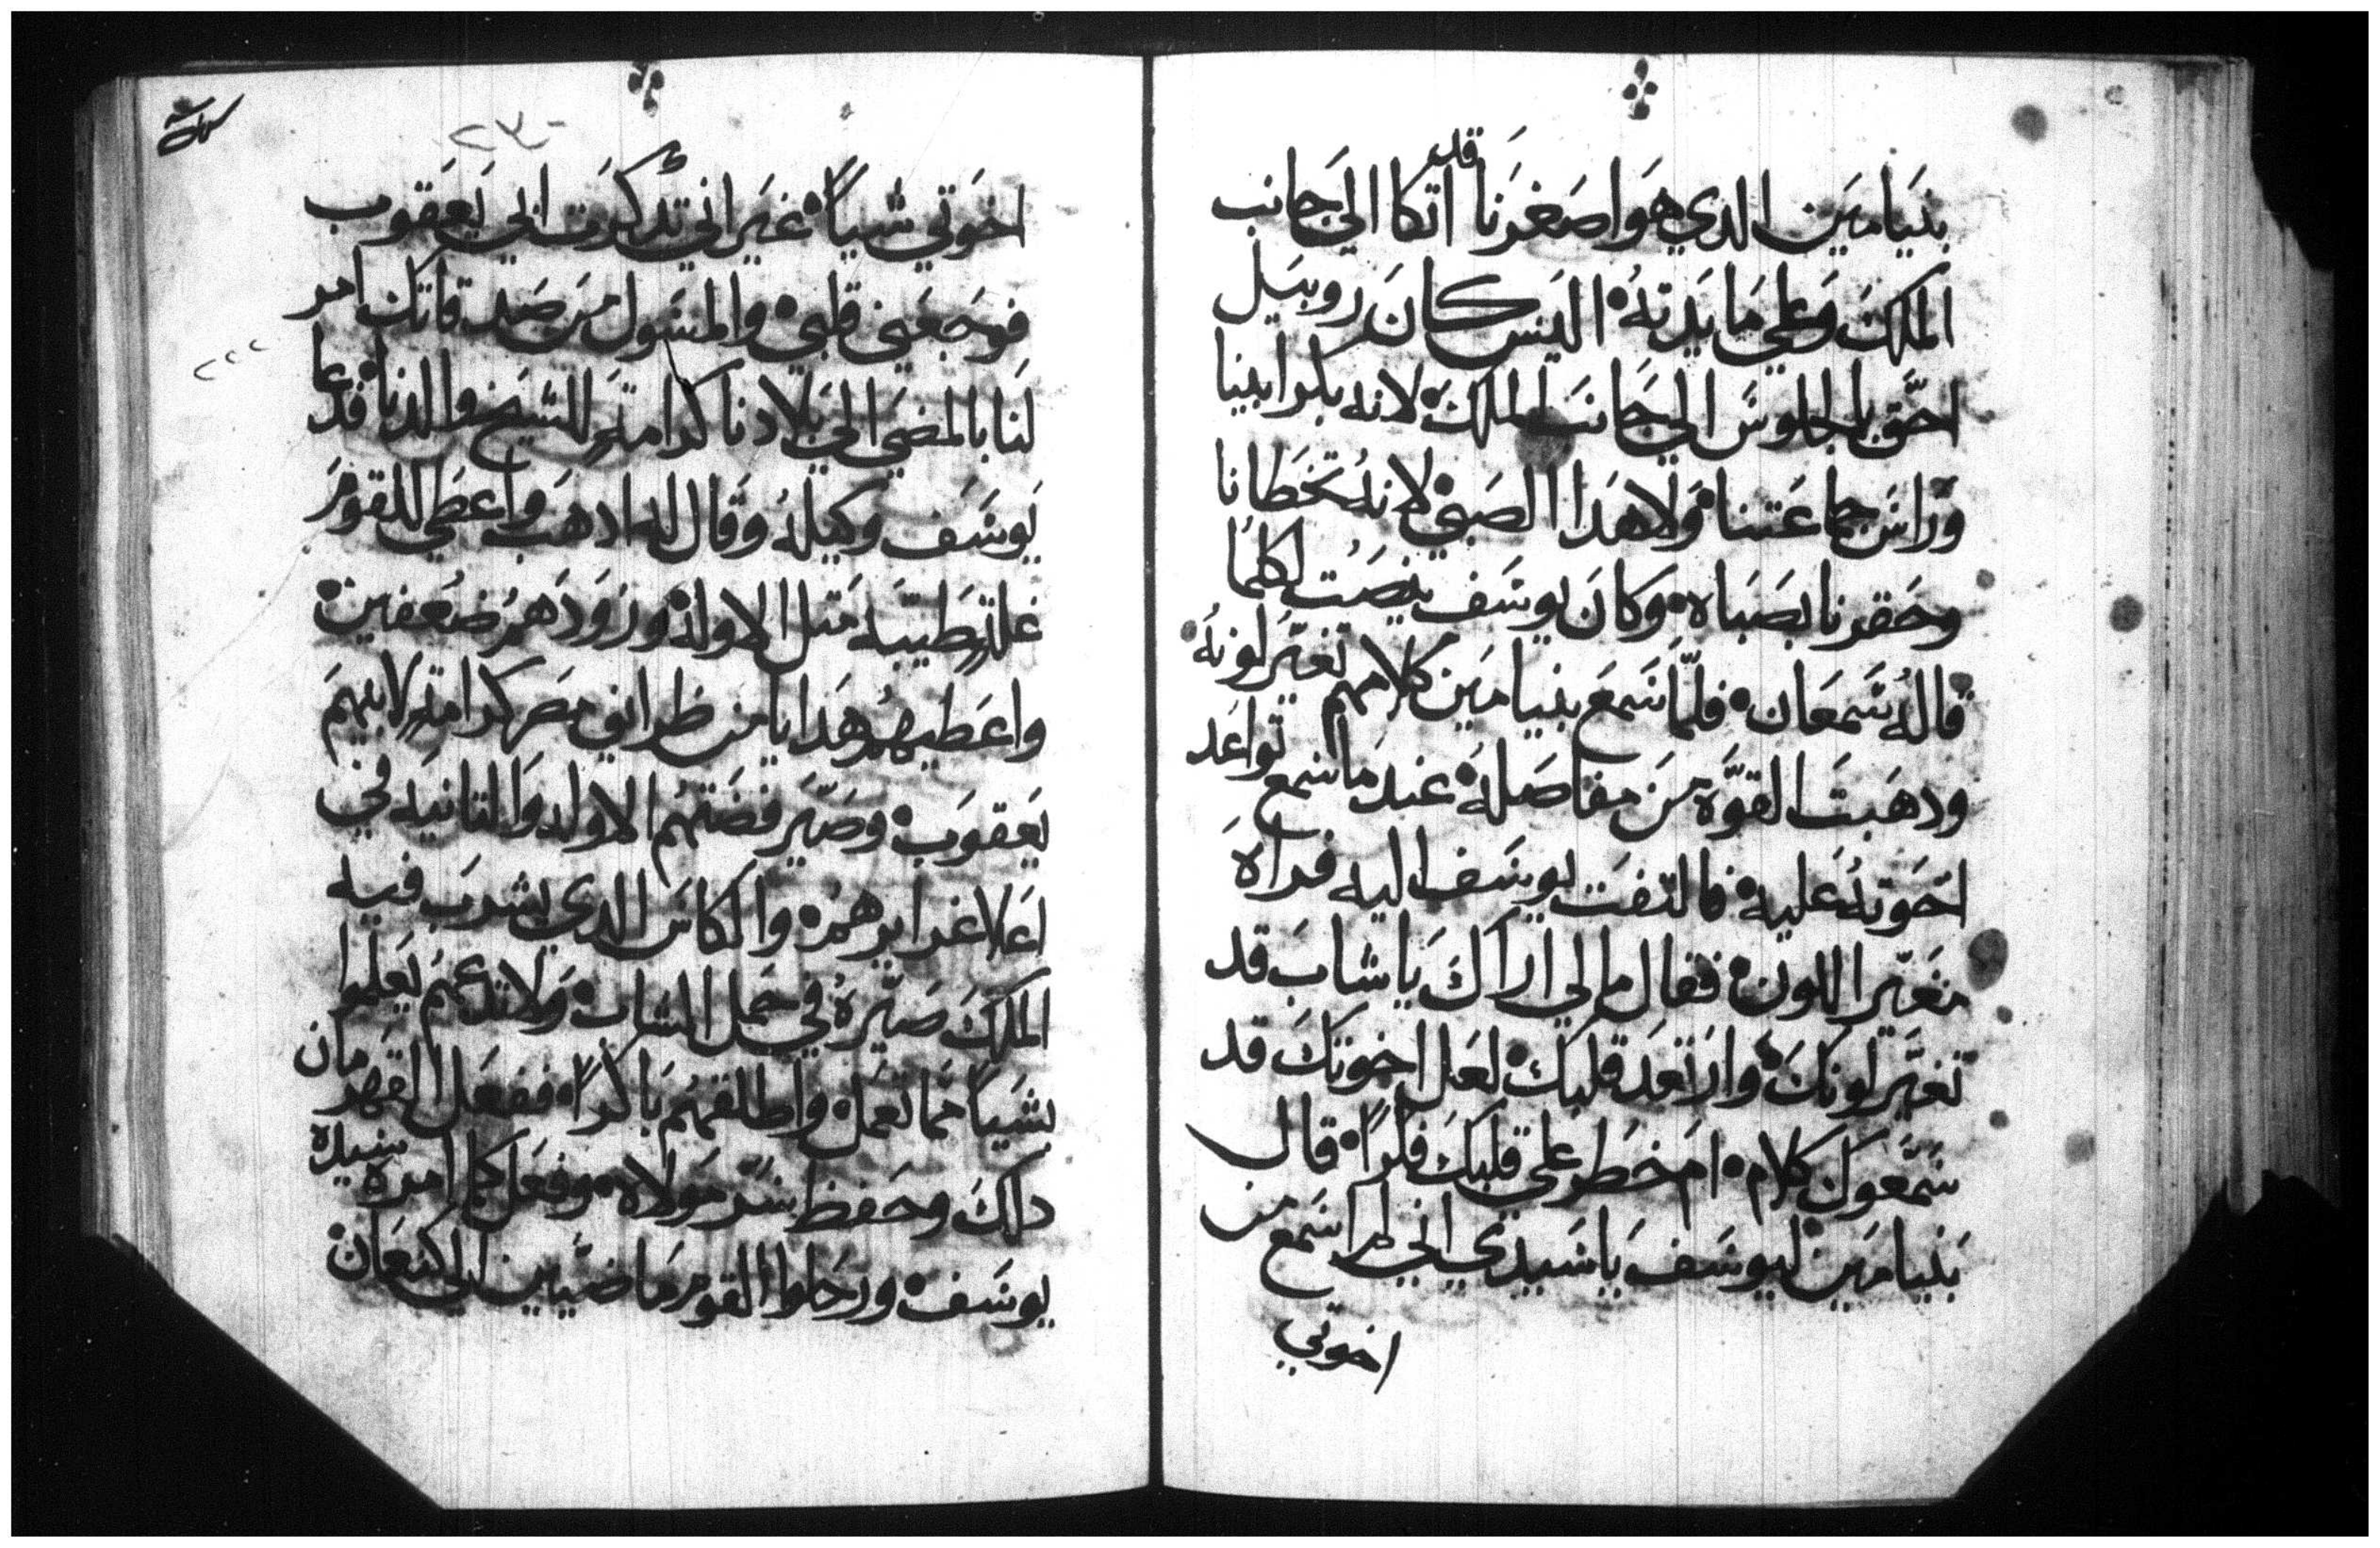 بنيامين الدي هو اصغرنا قد اتكا الي جانب
الملك وعلي مايدته اليس كان روبيل
احق بالجلوس الي جانب الملك لانه بكر ابينا
وراس جماعتنا ولا هدا الصبي لانه تخطانا
وحقرنا بصباه وكان يوسف ينصت لكلما
قاله سمعان فلما سمع بنيامين كلامهم تغير لونه
ودهبت القوة من مفاصله عند ما سمع تواعد
اخوته عليه فالتفت يوسف اليه فراه
متغير اللون فقال ما لي اراك يا شاب قد
تغير لونك وارتعد قلبك لعل اخوتك قد
سمعوك كلام ام خطر علي قلبك فكرا قال
بنيامين ليوسف يا سيدي اني لم اسمع من
اخوتي
٢٣٠
اخوتي شياً غير اني تدكرت ابي يعقوب
فوجعني قلبي والمسول من صدقاتك امر
لنا بالمضي الي بلادنا كرامة للشيخ والدنا فدعا
يوسف وكيله وقال له ادهب واعطي للقوم
غلة طيبه متل الاوله وزودهم ضعفين
واعطيهم هدايا من طرايف مصر كرامة لابيهم
يعقوب وصير فضتهم الاوله والتانيه في
اعلا غرايرهم والكاس الدي يشرب فيه
الملك صيره في حمل الشاب ولا تدعهم يعلموا
بشياً مما تعمل واطلقهم باكراً ففعل القهرمان
دلك وحفظ سر مولاه وفعل كما امره سيده
يوسف ورحلوا القوم ماضيين الي كنعان